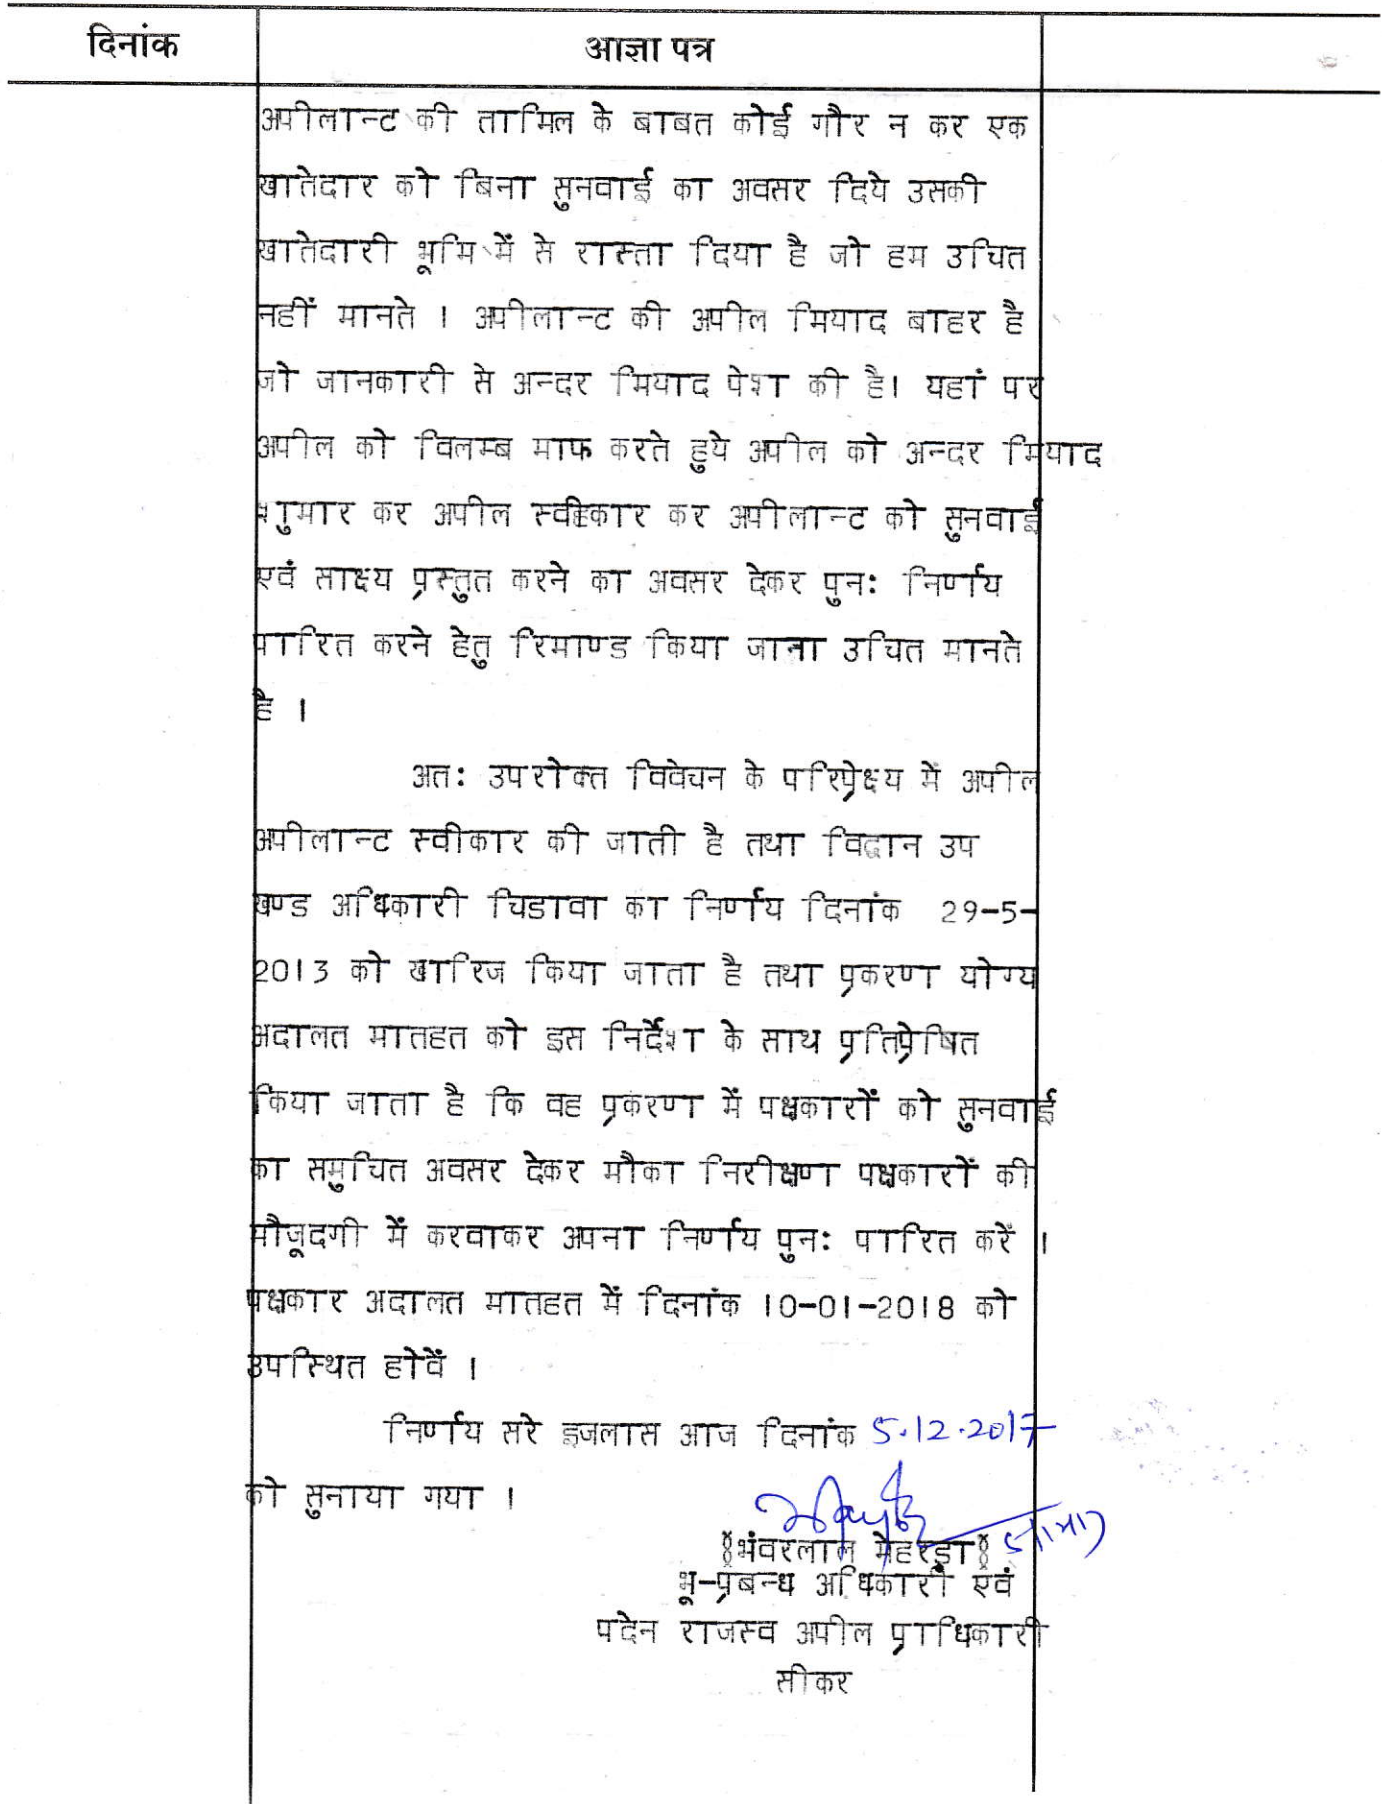 दिनांक
आज्ञा पत्र
अपीलान्ट की तामिल के बाबत कोई गौर न कर एक
खातेदार को बिना सुनवाई का अवसर दिये उसकी
खातेदारी भूमि में से रास्ता दिया है जो हम उचित
नहीं मानते । अपीलान्ट की अपील मियाद बाहर है
जो जानकारी से अन्दर मियाद पेश की है। यहां पर
अपील को विलम्ब माफ करते हुये अपील को अन्दर मियाद
शुमार कर अपील स्वीकार कर अपीलान्ट को सुनवाई
एवं साक्ष्य प्रस्तुत करने का अवसर देकर पुनः निर्णाय
पारित करने हेतु रिमाण्ड किया जाना उचित मानते
है ।
अतः उपरोक्त विवेचन के परिप्रेक्ष्य में अपील
अपीलान्ट स्वीकार की जाती है तथा विद्वान उप
खण्ड अधिकारी चिडावा का निर्णाय दिनांक 29-5-
2013 को खारिज किया जाता है तथा प्रकरण योग्य
अदालत मातहत को इस निर्देश के साथ प्रतिप्रेषित
किया जाता है कि वह प्रकरण में पक्षकारों को सुनवाई
का समुचित अवसर देकर मौका निरीक्षण पक्षकारों की
मौजूदगी में करवाकर अपना निर्णाय पुनः पारित करें ।
पक्षकार अदालत मातहत में दिनांक 10-01-2018 को
उपस्थित होवें ।
निर्णाय सरे इजलास आज दिनांक 5.12.2017
को सुनाया गया ।
भंवरलाल मेहरड़ा
भू-प्रबन्ध अधिकारी एवं
पदेन राजस्व अपील प्राधिकारी
सीकर